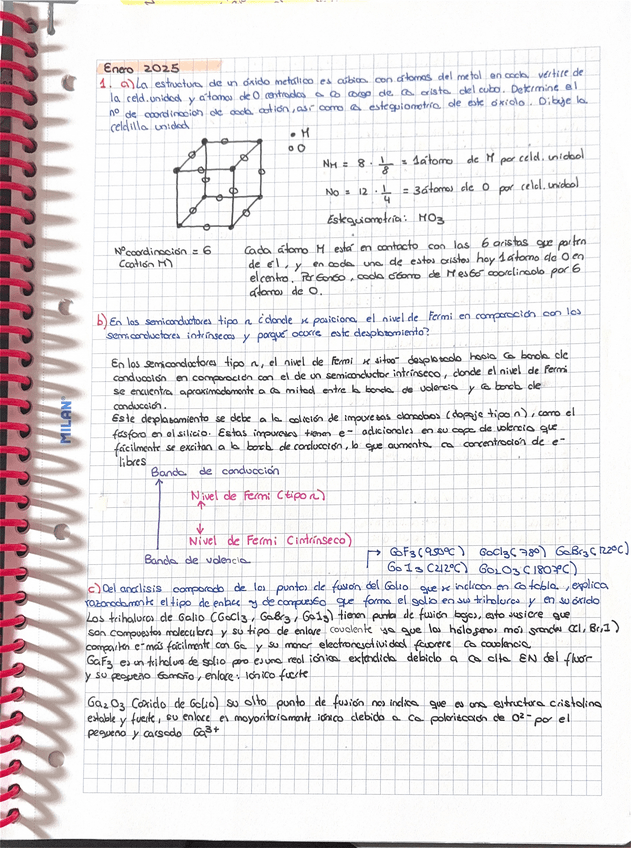 Enero 2025
1. a) La estructura de un óxido metálico es cúbica con átomos del metal en cada vértice de
la celd. unidad y átomos de O centrados a lo largo de la arista del cubo. Determine el
nº de coordinación de cada catión, así como la estequiometría de este óxido. Dibuje la
celdilla unidad
• M
o O
NM = 8 · 1/8 = 1 átomo de M por celd. unidad
NO = 12 · 1/4 = 3 átomos de O por celd. unidad
Estequiometría: MO3
Nº coordinación = 6
(catión M)
Cada átomo M está en contacto con las 6 aristas que parten
de él, y en cada una de estas aristas hay 1 átomo de O en
el centro. Por tanto, cada átomo de M está coordinado por 6
átomos de O.
b) En los semiconductores tipo n ¿dónde se posiciona el nivel de Fermi en comparación con los
semiconductores intrínsecos y porqué ocurre este desplazamiento?
En los semiconductores tipo n, el nivel de Fermi se sitúa desplazado hacia la banda de
conducción en comparación con el de un semiconductor intrínseco, donde el nivel de Fermi
se encuentra aproximadamente a la mitad entre la banda de valencia y la banda de
conducción.
Este desplazamiento se debe a la adición de impurezas donadoras (dopaje tipo n), como el
fósforo en el silicio. Estas impurezas tienen e- adicionales en su capa de valencia que
fácilmente se excitan a la banda de conducción, lo que aumenta la concentración de e-
libres
MILAN
Banda de conducción
Nivel de Fermi (tipo n)
Nivel de Fermi (intrínseco)
Banda de valencia
GaF3 (950ºC) GaCl3 (78º) GaBr3 (122ºC)
GaI3 (212ºC) Ga2O3 (1807ºC)
c) Del análisis comparado de los puntos de fusión del Galio que se indican en la tabla, explica
razonadamente el tipo de enlace y de compuesto que forma el galio en sus trihaluros y en su óxido
Los trihaluros de Galio (GaCl3, GaBr3, GaI3) tienen punto de fusión bajos, esto sugiere que
son compuestos moleculares y su tipo de enlace covalente ya que los halógenos más grandes (Cl, Br, I)
comparten e- más fácilmente con Ga y su menor electronegatividad favorece la covalencia
GaF3 es un trihaluro de galio pero es una red iónica extendida debido a la alta EN del fluor
y su pequeño tamaño, enlace: iónico fuerte
Ga2O3 (óxido de Galio) su alto punto de fusión nos indica que es una estructura cristalina
estable y fuerte, su enlace es mayoritariamente iónico debido a la polarización de O2- por el
pequeño y cargado Ga3+